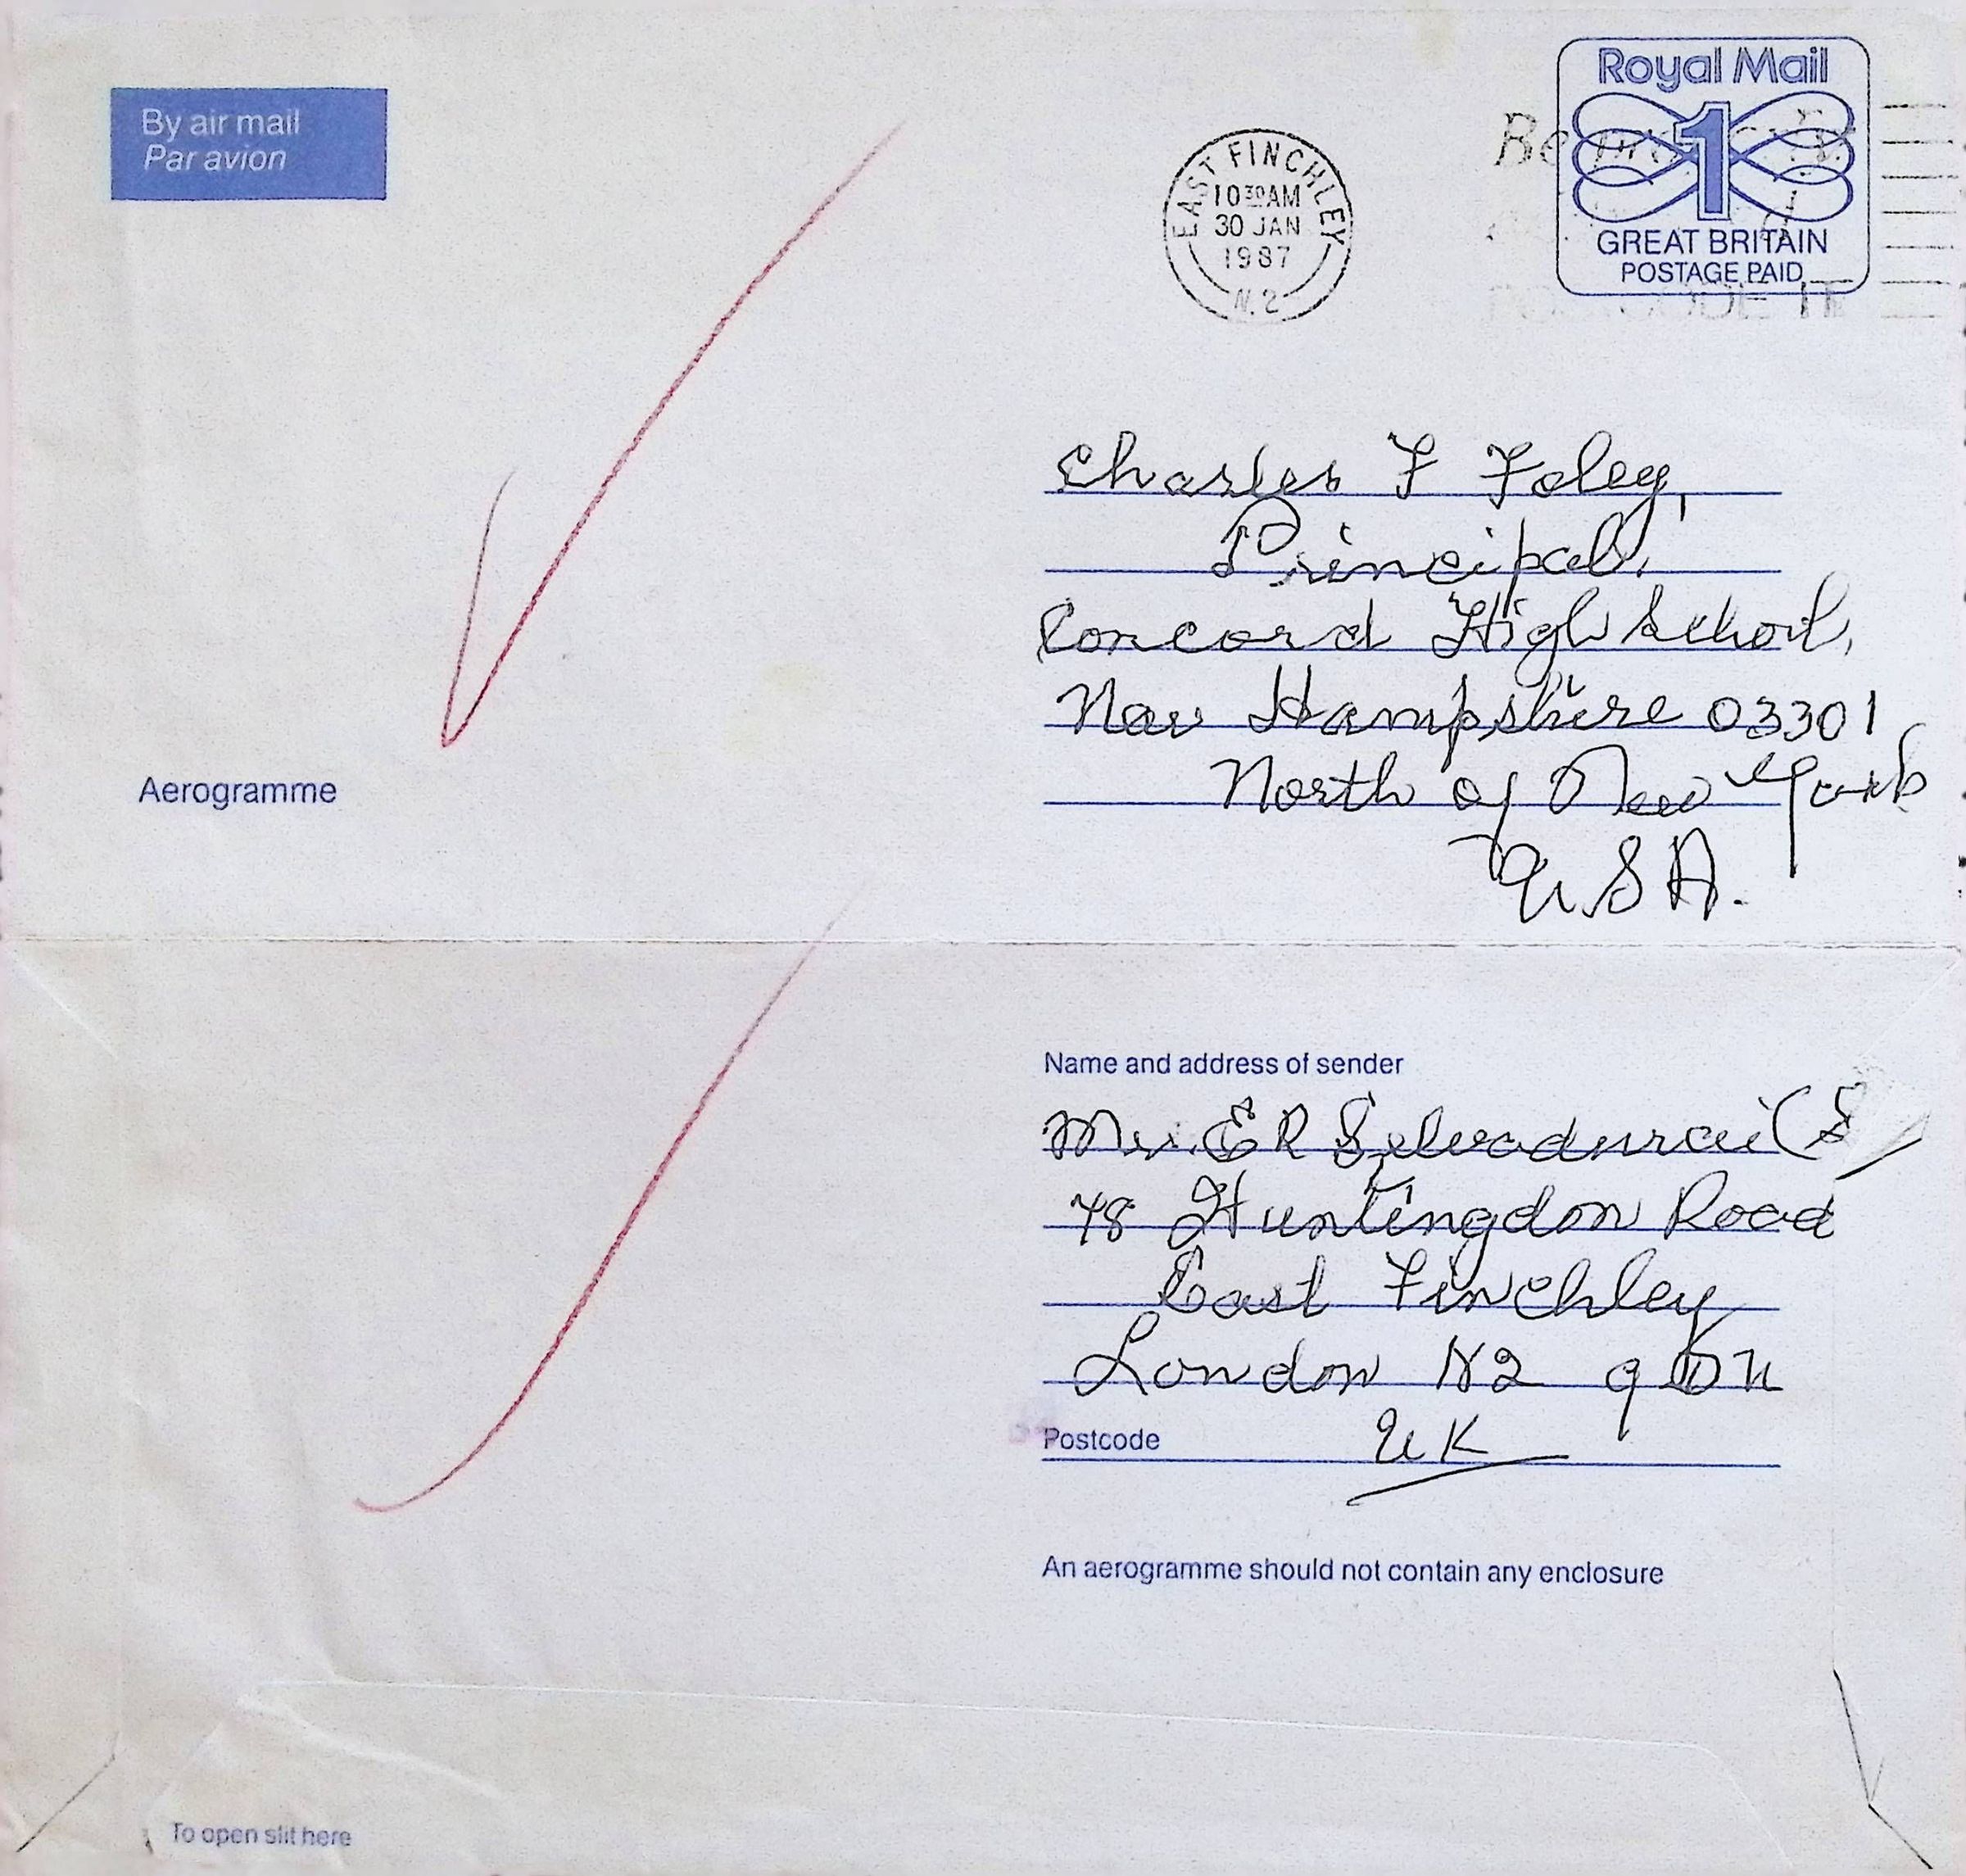 By air mail
Par avion
Royal Mail
1
GREAT BRITAIN
POSTAGE PAID
EAST FINCHLEY
10 30 AM
30 JAN
1987
N. 2
Charles F Foley,
Principal,
Concord High School,
New Hampshire 03301
North of New York
U.S.A.
Aerogramme
Name and address of sender
E R Selvadurai (S)
78 Huntingdon Road
East Finchley
London N2 9DU
Postcode
UK
An aerogramme should not contain any enclosure
To open slit here